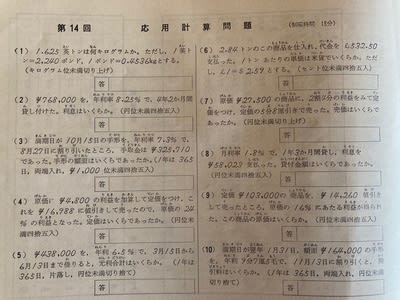 第14回 応用計算問題 (制限時間 15分)
(1) 1.625英トンは何キログラムか。ただし、1英ト
ン=2.240ポンド、1ポンド=0.4536kgとする。
(キログラム位未満切り上げ)
答
(2) ¥768.000を、年利率8.25%で、4年2か月間
貸し付けた。利息はいくらか。(円位未満四捨五入)
答
(3) 満期日が10月15日の手形を、年利率7.3%で、
8月27日に割り引いたところ、手取金は¥325.710
であった。手形の額面はいくらであったか。(1年は365
日、両端入れ、¥1.000位未満四捨五入)
答
(4) 原価に¥4.800の利益を加算して定価をつけ、こ
れを¥16.788に値引きして売ったので、原価の24
%の利益となった。定価はいくらであったか。(円位未
満四捨五入)
答
(5) ¥438.000を、年利率6.5%で、3月15日から
6月13日まで借りると、元利合計はいくらか。(1年は
365日、片落し、円位未満切り捨て)
答
(6) 2.84トンのこの商品を仕入れ、代金を£532.50
支払った。1トンあたりの単価は米貨でいくらか。ただ
し、£1=$2.59とする。(セント位未満四捨五入)
答
(7) 原価¥27.500の商品に、2割4分の利益をみて定
価をつけ、定価の5分8厘引きで売った。売価はいくら
か。(円位未満四捨五入)
答
(8) 月利率1.8%で、1年3か月間貸し、利息を
¥58.023支払った。貸付金額はいくらであったか。
(円位未満四捨五入)
答
(9) 定価¥103.000の商品を、¥14.260値引き
して売ったところ、原価の16%にあたる利益が得られ
た。この商品の原価はいくらか。(円位未満四捨五入)
答
(10) 満期日が翌年1月31日、額面¥164.000の手形
を、年利率9分7厘で、11月13日に割り引くと、
割引料はいくらか。(1年は365日、両端入れ、円位未
満切り捨て)
答